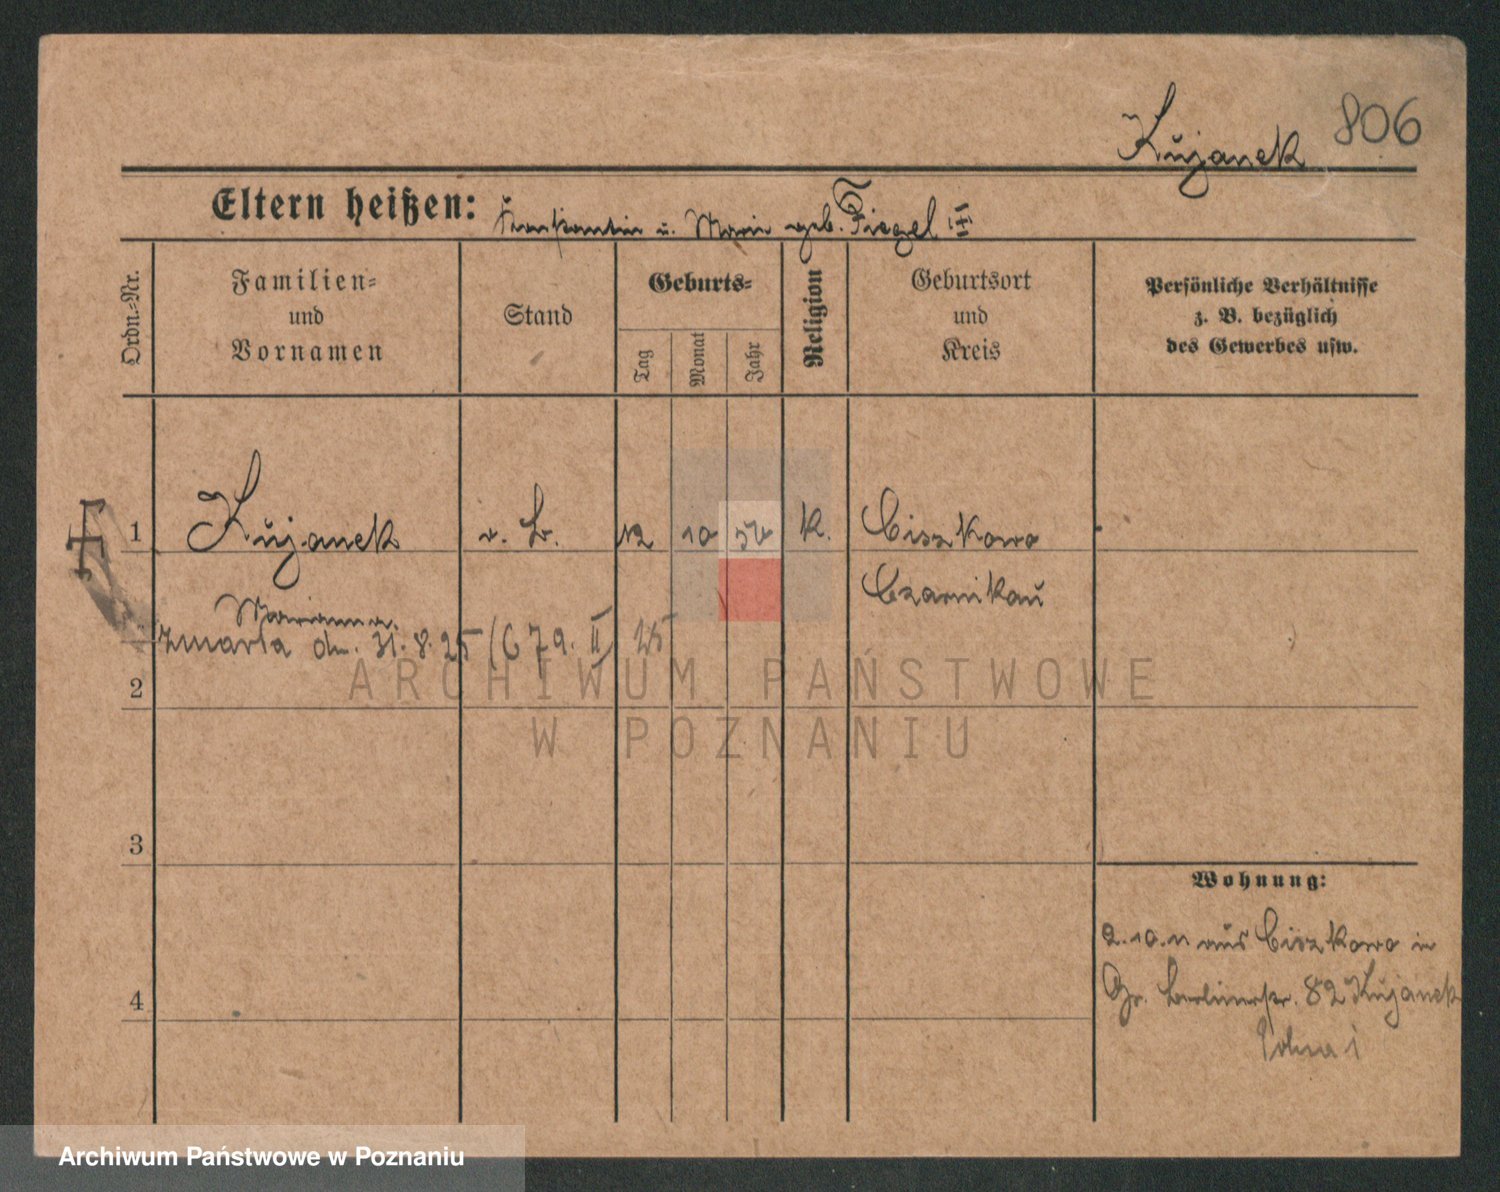 Kujanek 806
Eltern heißen: Konstantin u. Marie geb. Fiegel
Ordn.-Nr.
Familien-
und
Vornamen
Stand
Geburts-
Tag
Monat
Jahr
Religion
Geburtsort
und
Kreis
Persönliche Verhältnisse
z. B. bezüglich
des Gewerbes usw.
1 Kujanek 12 10 K. Ciszkowo
Marianna. Czarnikau
zmarła dn. 31.8.25 (679. II 25
ARCHIWUM PAŃSTWOWE
W POZNANIU
2
3
4
Wohnung:
2.10.11 aus Ciszkowo in
Gr. Berlinerstr. 82 Kujanek
Archiwum Państwowe w Poznaniu